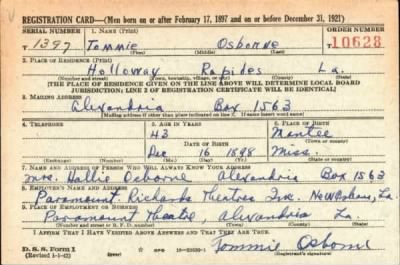 REGISTRATION CARD—(Men born on or after February 17, 1897 and on or before December 31, 1921)
SERIAL NUMBER 1. NAME (Print) ORDER NUMBER
T 1397 Tommie Osborne T10628
(First) (Middle) (Last)
2. PLACE OF RESIDENCE (Print)
Holloway Rapides La.
(Number and street) (Town, township, village, or city) (County) (State)
[THE PLACE OF RESIDENCE GIVEN ON THE LINE ABOVE WILL DETERMINE LOCAL BOARD
JURISDICTION; LINE 2 OF REGISTRATION CERTIFICATE WILL BE IDENTICAL]
3. MAILING ADDRESS
Alexandria Box 1563
[Mailing address if other than place indicated on line 2. If same insert word same]
4. TELEPHONE 5. AGE IN YEARS 6. PLACE OF BIRTH
43 Mantee
DATE OF BIRTH (Town or county)
Dec 16 1898 Miss.
(Exchange) (Number) (Mo.) (Day) (Yr.) (State or country)
7. NAME AND ADDRESS OF PERSON WHO WILL ALWAYS KNOW YOUR ADDRESS
Mrs. Hallie Osborne Alexandria Box 1563
8. EMPLOYER'S NAME AND ADDRESS
Paramount Richards Theatres Inc. New Orleans, La.
9. PLACE OF EMPLOYMENT OR BUSINESS
Paramount Theatre, Alexandria La.
(Number and street or R. F. D. number) (Town) (County) (State)
I AFFIRM THAT I HAVE VERIFIED ABOVE ANSWERS AND THAT THEY ARE TRUE.
D. S. S. Form 1
(Revised 1-1-42) GPO Tommie Osborne
(Registrant's signature)